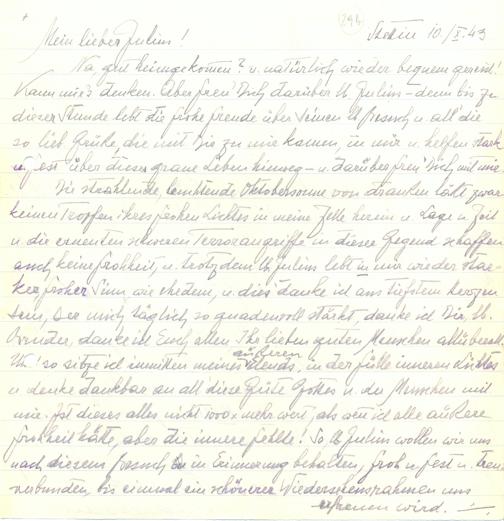 294
Stettin 10./X.43
Mein lieber Julius!
Na, gut heimgekommen? u. natürlich wieder bequem gereist!
Kann mir's denken. Aber freu' Dich darüber lb. Julius – denn bis zu
dieser Stunde lebt die frohe Freude über Deinen lb. Besuch u. all die
so lieb. Grüße, die mit Dir zu mir kamen, in mir u. helfen stark
u. fest über dieses graue Leben hinweg – u. darüber freu' Dich mit mir.
Die strahlende leuchtende Oktobersonne von draußen läßt zwar
keinen Tropfen ihres frohen Lichtes in meine Zelle herein u. Lage u. Zeit
u. die erneuten schweren Terrorangriffe in dieser Gegend schaffen
auch keine Frohheit, u. trotzdem lb. Julius lebt in mir wieder star-
ker froher Sinn wie ehedem, u. dies danke ich aus tiefstem Herzen
Dem, Der mich täglich so gnadenvoll stärkt, danke ich Dir, lb.
Bruder, danke ich Euch allen Ihr lieben guten Menschen allüberall.
so sitze ich inmitten meines äußeren Elends, in der Fülle inneren Lichtes
u. denke dankbar an all diese Güte Gottes u. der Menschen mit
mir. Ist dieses alles nicht 1000 x mehr wert, als wenn ich alle äußere
Freiheit hätte, aber die innere fehlte! So lb. Julius wollen wir uns
nach diesem Besuch in Erinnerung behalten, froh u. fest u. treu
verbunden, bis einmal ein schönerer Wiedersehensrahmen uns
erfreuen wird. –